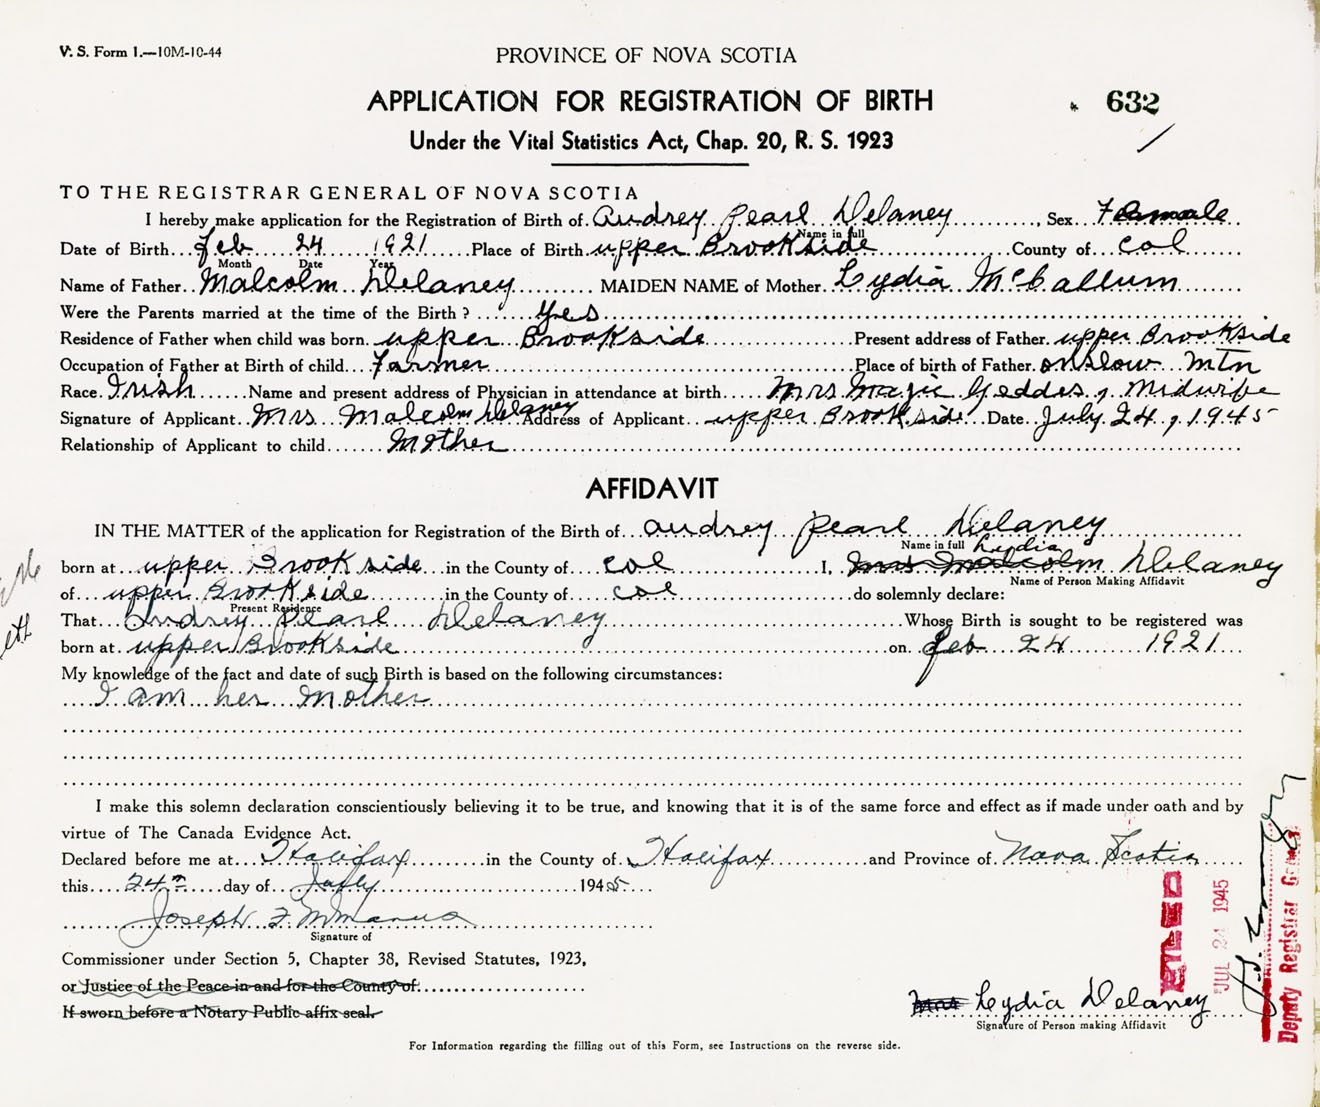 V. S. Form 1.—10M-10-44
PROVINCE OF NOVA SCOTIA
APPLICATION FOR REGISTRATION OF BIRTH
632
Under the Vital Statistics Act, Chap. 20, R. S. 1923
TO THE REGISTRAR GENERAL OF NOVA SCOTIA
I hereby make application for the Registration of Birth of Audrey Pearl Delaney, Sex Female
Name in full
Date of Birth Feb 24 1921 Place of Birth upper Brookside County of Col
Month Date Year
Name of Father Malcolm Delaney MAIDEN NAME of Mother Lydia McCallum
Were the Parents married at the time of the Birth? Yes
Residence of Father when child was born upper Brookside Present address of Father upper Brookside
Occupation of Father at Birth of child Farmer Place of birth of Father onslow Mtn
Race Irish Name and present address of Physician in attendance at birth Mrs Mazie Geddes, Midwife
Signature of Applicant Mrs Malcolm Delaney Address of Applicant upper Brookside Date July 24, 1945
Relationship of Applicant to child Mother
AFFIDAVIT
IN THE MATTER of the application for Registration of the Birth of Audrey Pearl Delaney
Name in full Lydia
born at upper Brookside in the County of Col I, Mrs Malcolm Delaney
Name of Person Making Affidavit
of upper Brookside in the County of Col do solemnly declare:
Present Residence
That Audrey Pearl Delaney Whose Birth is sought to be registered was
born at upper Brookside on Feb 24 1921
My knowledge of the fact and date of such Birth is based on the following circumstances:
I am her Mother
I make this solemn declaration conscientiously believing it to be true, and knowing that it is of the same force and effect as if made under oath and by
virtue of The Canada Evidence Act.
Declared before me at Halifax in the County of Halifax and Province of Nova Scotia
this 24th day of July 1945
Joseph F McManus
Signature of
Commissioner under Section 5, Chapter 38, Revised Statutes, 1923,
or Justice of the Peace in and for the County of
If sworn before a Notary Public affix seal.
Mrs Lydia Delaney
Signature of Person making Affidavit
FILED
JUL 24 1945
Deputy Registrar General
For Information regarding the filling out of this Form, see Instructions on the reverse side.